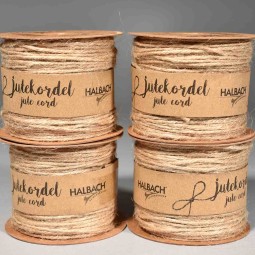 julekordel
jute cord
HALBACH
julekordel
jute cord
HALBACH
julekordel
jute cord
HALBACH
HALBACH
julekordel
jute cord